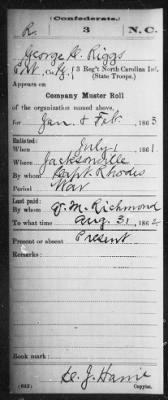 (Confederate.)
R. 3 N.C.
George W. Riggs
Pvt, Co. G, 3 Reg't North Carolina Inf.
(State Troops.)
Appears on
Company Muster Roll
of the organization named above,
for Jan. & Feb. 1863
Enlisted:
When July 1 1861
Where Jacksonville
By whom Capt. Rhodes
Period War
Last paid:
By whom J. M. Richmond
To what time Aug. 31, 1862
Present or absent Present
Remarks:
Book mark:
(642) Copyist.